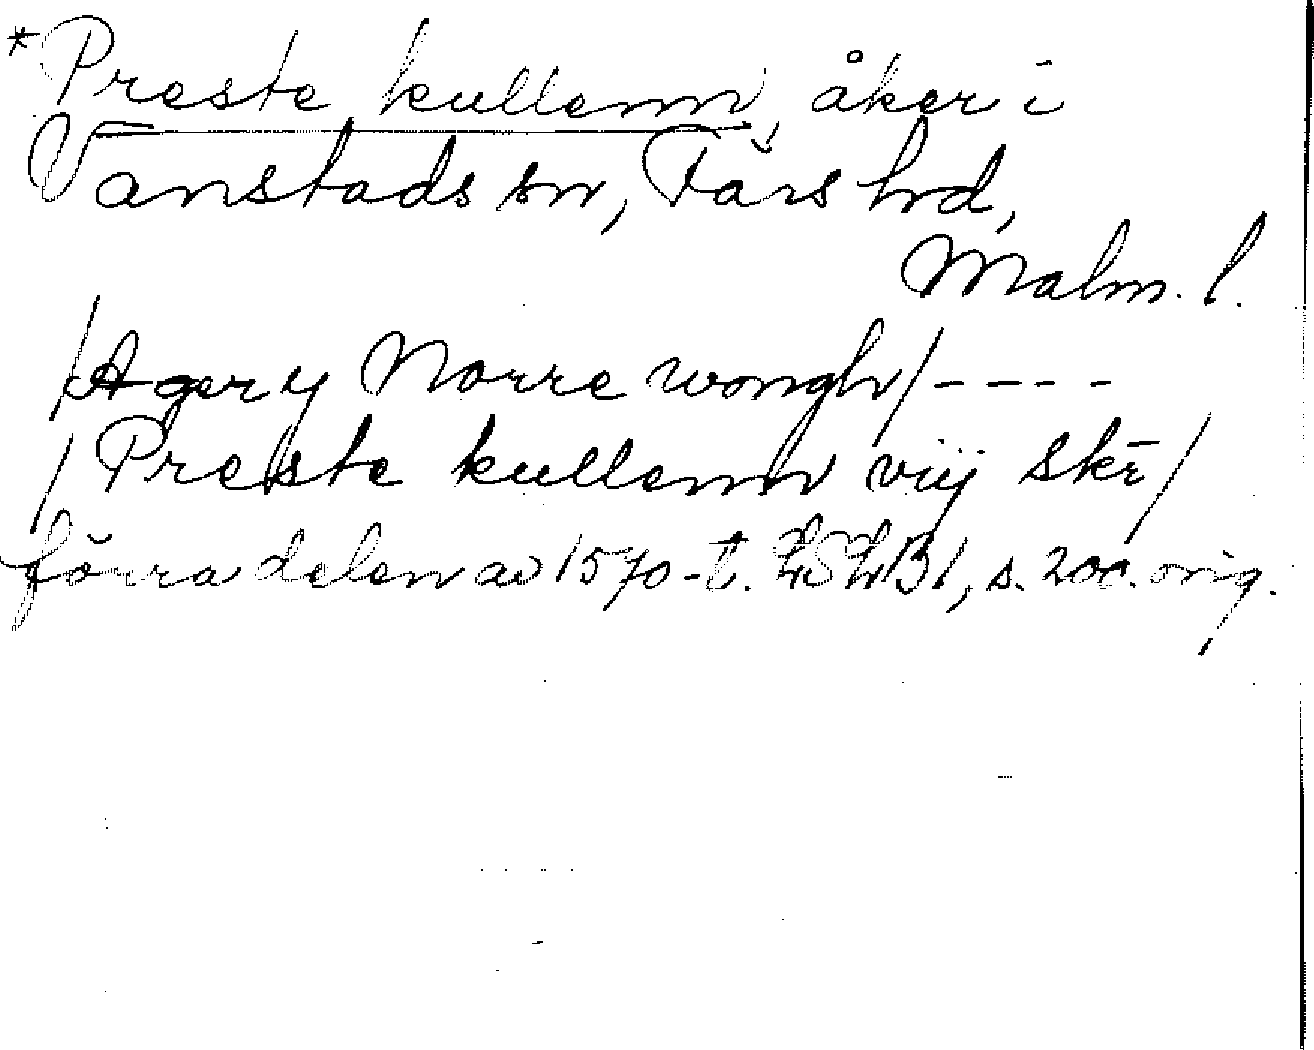 *Preste kullenn, åker i
Vanstads sn, Färs hd,
Malm. l.
/Ager y Norre wongh/----
/Preste kullenn viij skē/
förra delen av 1570-t. LSLB1, s. 200. orig.